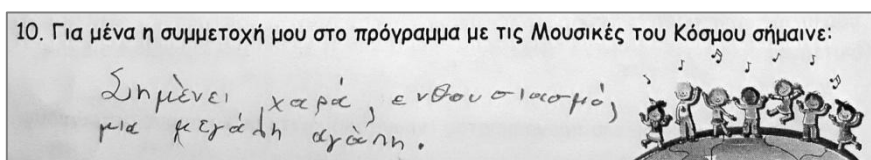 10. Για μένα η συμμετοχή μου στο πρόγραμμα με τις Μουσικές του Κόσμου σήμαινε:
Σημένει χαρά, ενθουσιασμό,
μια μεγάλη αγάπη.